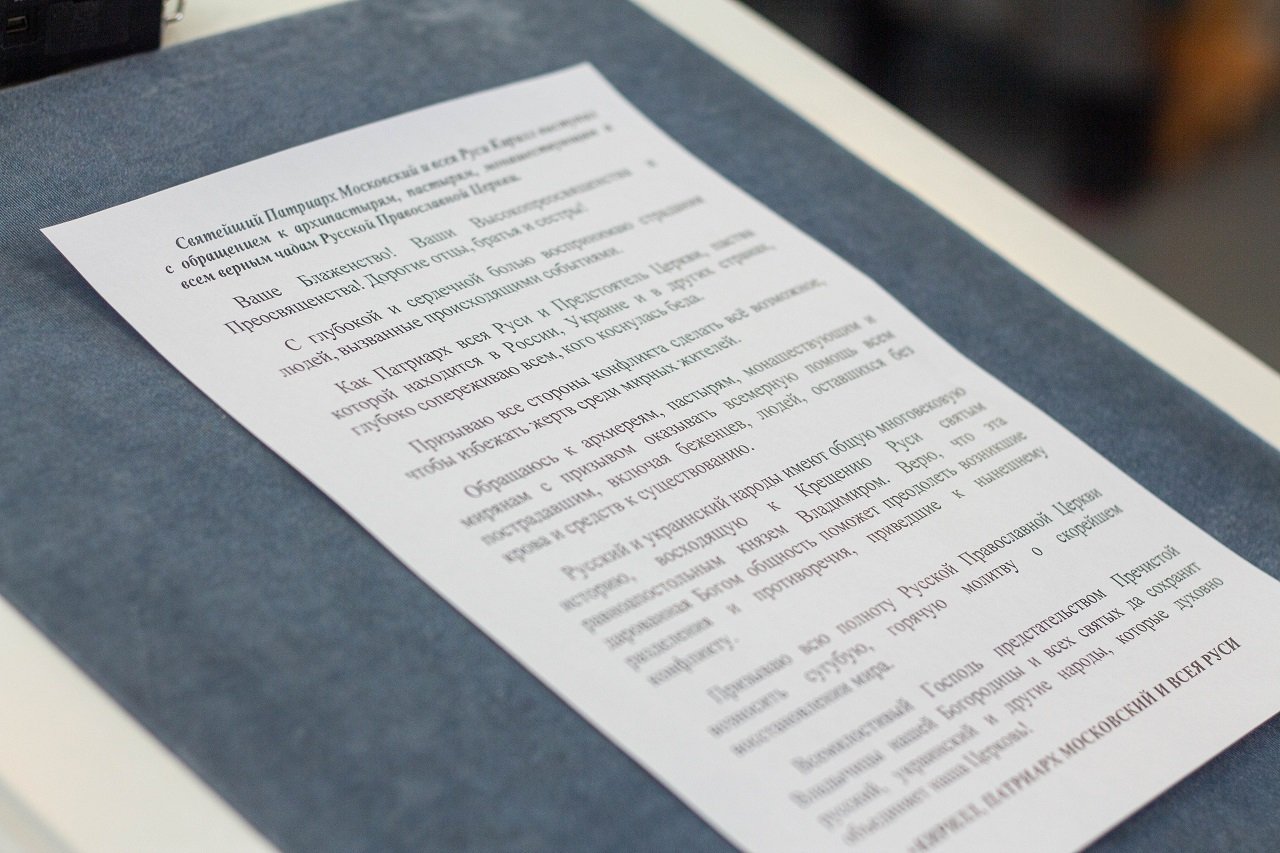 Святейший Патриарх Московский и всея Руси Кирилл выступил
с обращением к архипастырям, пастырям, монашествующим и
всем верным чадам Русской Православной Церкви.
Ваше Блаженство! Ваши Высокопреосвященства и
Преосвященства! Дорогие отцы, братья и сестры!
С глубокой и сердечной болью воспринимаю страдания
людей, вызванные происходящими событиями.
Как Патриарх всея Руси и Предстоятель Церкви, паства
которой находится в России, Украине и в других странах,
глубоко сопереживаю всем, кого коснулась беда.
Призываю все стороны конфликта сделать всё возможное,
чтобы избежать жертв среди мирных жителей.
Обращаюсь к архиереям, пастырям, монашествующим и
мирянам с призывом оказывать всемерную помощь всем
пострадавшим, включая беженцев, людей, оставшихся без
крова и средств к существованию.
Русский и украинский народы имеют общую многовековую
историю, восходящую к Крещению Руси святым
равноапостольным князем Владимиром. Верю, что эта
дарованная Богом общность поможет преодолеть возникшие
разделения и противоречия, приведшие к нынешнему
конфликту.
Призываю всю полноту Русской Православной Церкви
возносить сугубую, горячую молитву о скорейшем
восстановлении мира.
Всемилостивый Господь предстательством Пречистой
Владычицы нашей Богородицы и всех святых да сохранит
русский, украинский и другие народы, которые духовно
объединяет наша Церковь!
КИРИЛЛ, ПАТРИАРХ МОСКОВСКИЙ И ВСЕЯ РУСИ